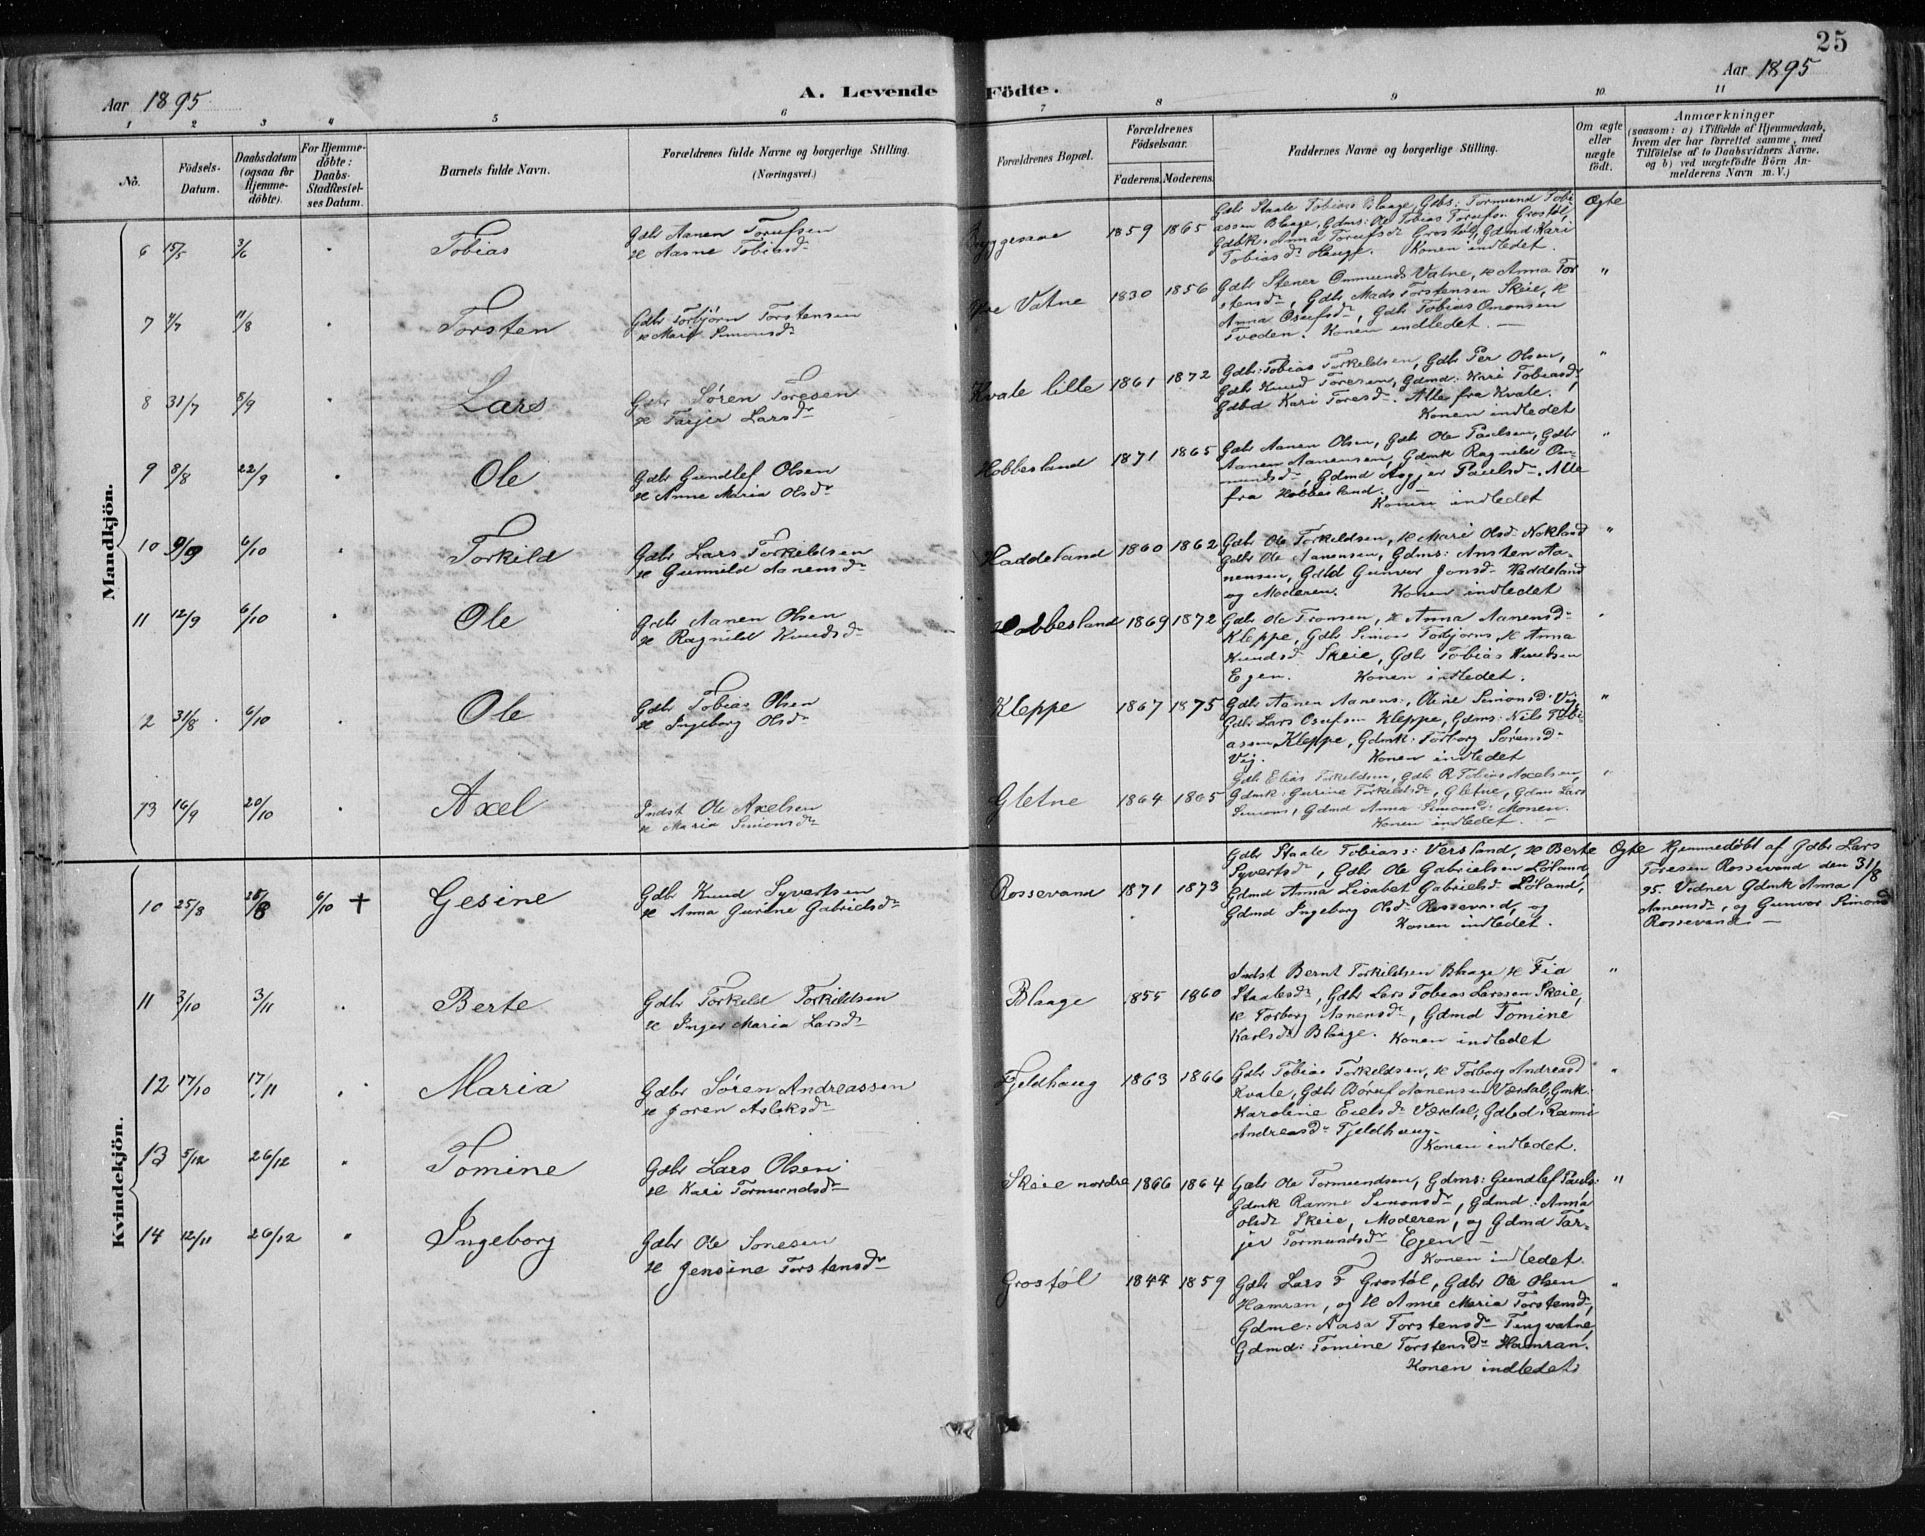 25
Aar 1895
A. Levende Födte.
Aar 1895
1 2 3 4 5 6 7 8 9 10 11
No.
Födsels-Datum.
Daabsdatum (ogsaa for Hjemme-döbte).
For Hjemme-döbte: Daabs-Stadfæstel-ses Datum.
Barnets fulde Navn.
Forældrenes fulde Navne og borgerlige Stilling.
(Næringsvei.)
Forældrenes Bopæl.
Forældrenes Födselsaar.
Faderens. Moderens.
Faddernes Navne og borgerlige Stilling.
Om ægte eller uægte födt.
Anmærkninger
(saasom: a) i Tilfælde af Hjemmedaab,
hvem der har forrettet samme, med
Tilföielse af to Daabsvidners Navne,
og b) ved uægtefödte Börn An-
melderens Navn m. V.)
Mandkjön.
6 15/5 3/6 " Tobias
Gdbr Aanen Torufsen
H Aasne Tobiasdr
1859 1865
Gdbr Staale Tobias Blaage, Gdbs: Tormund Tobi-
assen Blaage, Gdms: Ole Tobias Torufsn Grostøl,
Gdbk. Anna Torufsdr Grostøl, Gdmd: Kari
Tobiasdr Hauge. Konen indledet.
Ægte
7 4/7 11/8 " Torsten
Gdbr Torbjørn Torstensen
H Mari Simonsdr
Øvre Vatne 1830 1856
Gdbr Stener Ommunds Vatne, H Anna Tor
stensdr, Gdbr Mads Torstensen Skeie, H
Anna Osufsdr, Gdbr Tobias Omonsen
Tveden. Konen indledet. —
"
8 31/7 8/9 " Lars
Gdbr Søren Toresen
H Tarjer Larsdr
Kvale lille 1861 1872
Gdbr: Tobias Torkeldsen, Gdbr Per Olsen,
Gdbr Knud Toresen, Gdmd: Kari Tobiasdr,
Gdbd Kari Toresdr. Alle fra Kvale.
Konen indledet
"
9 8/8 22/9 " Ole
Gdbr Gundlef Olsen
H Anne Maria Olsdr
Hobbesland 1871 1865
Gdbr Aanen Olsen, Gdbr Ole Paulsen, Gdbr
Aanen Aanensen, Gdmk Ragnild Om-
mundsdr, Gdmd Asgjer Paulsdr. Alle
fra Hobbesland. — Konen indledet
"
10 9/9 6/10 " Torkild
Gdbr Lars Torkildsen
H Gunnild Aanensdr
Haddeland 1860 1862
Gdbr Ole Torkildsen, H Mari Olsd Nokland
Gdbr Ole Aanensen, Gdms: Ansten Aa-
nensen, Gdbd Gunvor Jonsdr Haddeland
og Moderen. Konen indledet
"
11 12/9 6/10 " Ole
Gdbr Aanen Olsen
H Ragnild Knudsdr
Hobbesland 1869 1872
Gdbr Ole Tronsen, H Anna Aanensdr
Kleppe, Gdbr Simon Torbjørns, H Anna
Knudsdr Skeie, Gdbr Tobias Knudsen
Egen. Konen indledet.
"
2 31/8 6/10 " Ole
Gdbr Tobias Olsen
H Ingeborg Olsdr
Kleppe 1867 1875
Gdbr Aanen Aanens:, Oline Simonsd: Vig,
Gdbr Lars Osufsen Kleppe, Gdms: Nils Tobi-
assen Kleppe, Gdmk: Torborg Sørensd:
Vig. Konen indledet
"
13 16/9 20/10 " Axel
Indst Ole Axelsen
H Maria Simonsdr
Gletne 1864 1865
Gdbr Elias Torkildsen, Gdbr R Tobias Axelsen,
Gdmk: Gurine Torkildsdr, Gletne, Gdms Lars
Simons, Gdmd Anna Simonsdr Monen.
Konen indledet. —
"
Kvindekjön.
10 25/8 25/8 6/10 + Gesine
Gdbr Knud Syvertsen
H Anna Gurine Gabrielsdr
Rossevand 1871 1873
Gdbr Staale Tobiass: Versland, H Berte
Syvertsdr, Gdbr Ole Gabrielsen Löland,
Gdmd Anna Lisabet Gabrielsdr Löland,
Gdmd Ingeborg Olsdr Rossevand, og
Konen indledet.
Ægte
Hjemmedøbt af Gdbr Lars
Toresen Rossevand den 31/8
95. Vidner Gdmk Anna
Aanensdr, og Gunvor Simonsdr
Rossevand —
11 3/10 3/11 " Berte
Gdbr Torkeld Torkildsen
H Inger Maria Larsdr
Blaage 1855 1860
Indst Bernt Torkildsen Blaage, H Fia
Staalesdr, Gdbr Lars Tobias Larssen Skeie,
H Torborg Aanensdr, Gdmd Tomine
Karlsdr Blaage. Konen indledet
"
12 17/10 17/11 " Maria
Gdbr Søren Andreassen
H Joren Aslaksdr
Fjeldhaug 1863 1866
Gdbr Tobias Torkeldsen, H Torborg Andreasd
Kvale, Gdbr Børuf Aanensen Værdal, Gmk:
Karoline Eielsdr Værdal, Gdbd: Rannei
Andreasdr Fjeldhaug.
Konen indledet.
"
13 5/12 26/12 " Tomine
Gdbr Lars Olsen
H Kari Tormundsdr
Skeie nordre 1866 1864
Gdbr Ole Tormundsen, Gdms: Gundlef Pauls:
Gdmk Ranne Simonsdr, Gdmd: Anna
Olsdr Skeie, Moderen, og Gdmd Tar-
jer Tormundsdr Egen —
Konen indledet.
"
14 12/11 26/12 " Ingeborg
Gdbr Ole Sonesen
H Jensine Torstensdr
Grostøl 1844 1859
Gdbr Lars T Grostøl, Gdbr Ole Olsen
Hamran, og H Anne Maria Torstensdr,
Gdmd: Aasa Torstensdr Tingvatne,
Gdmd: Tomine Torstensdr Hamran.
Konen indledet.
"